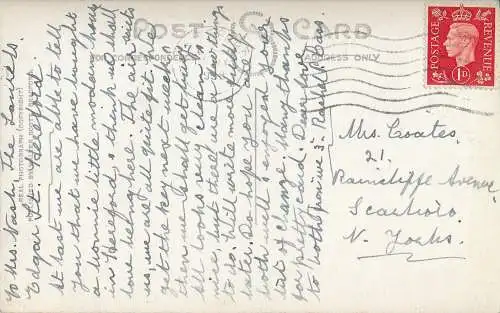 POST CARD
FOR CORRESPONDENCE
ADDRESS ONLY
POSTAGE
REVENUE
1D
REAL PHOTOGRAPH (COPYRIGHT)
To Mrs. North, The Laurels
Edgar St.
At last we are able to tell
you that we have bought
a bonnie little modern house
in Hereford & think we shall
love being here. The air suits
us, we are all quite fit. We
get the key next week
then we should get in.
all looks very clean &
nice, but there are few things
to do. Will write more fully
later. Do hope you are
both well & enjoyed your
bit of change. Many thanks
for pretty card. Dear love
to both from we 3. Rachel
Mrs. Coates,
21,
Raincliffe Avenue,
Scarboro,
N. Yorks.